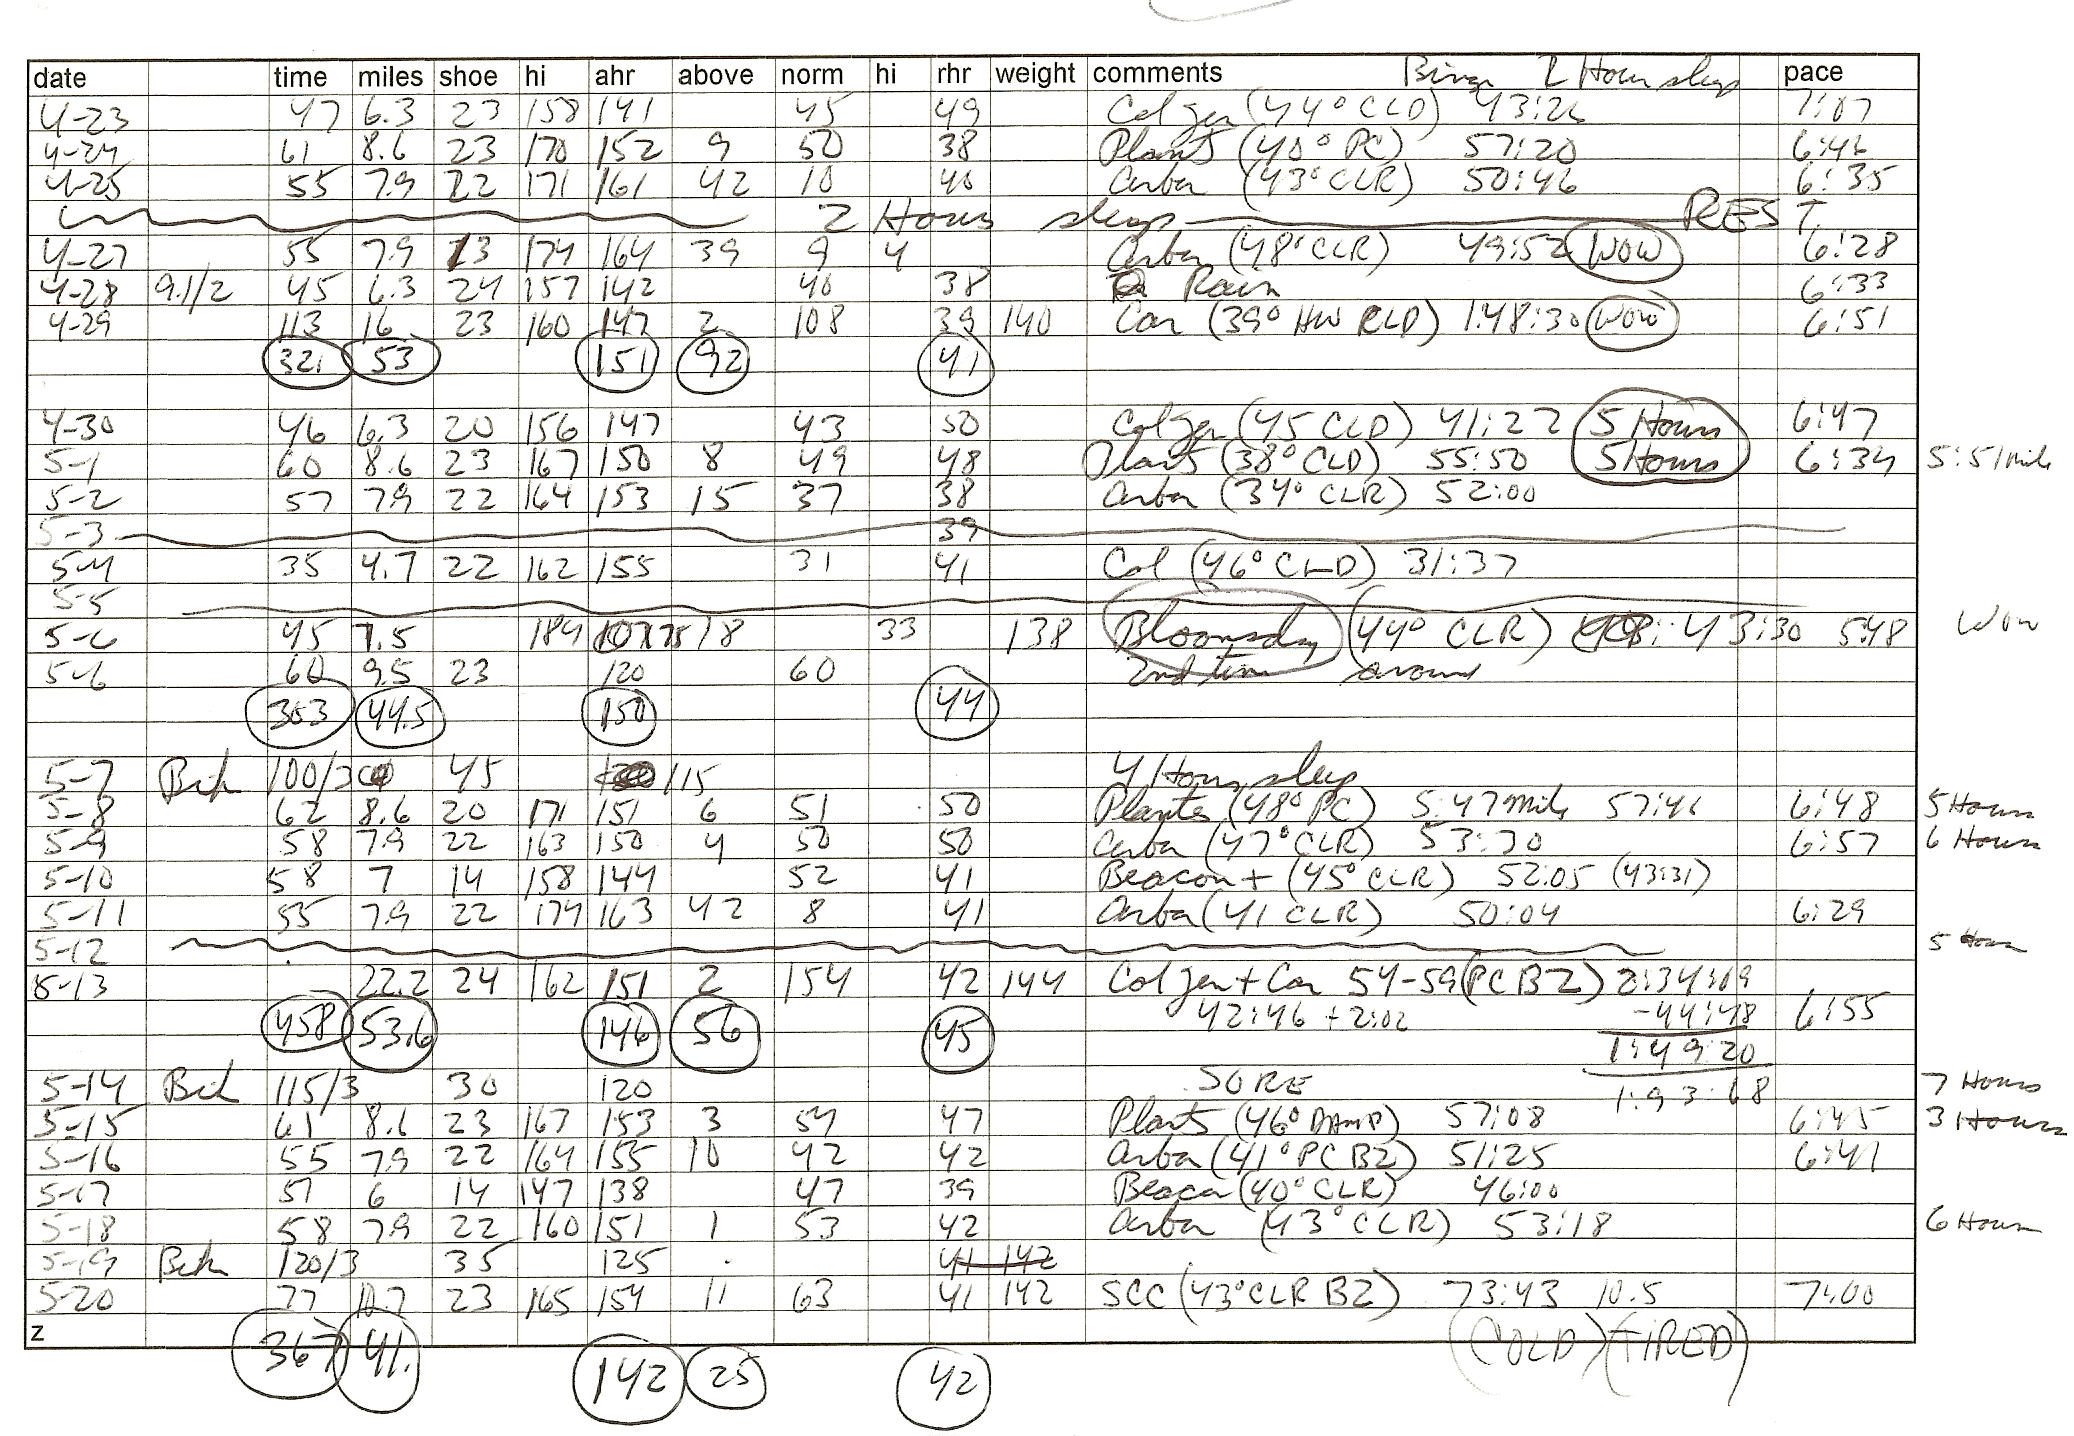 date time miles shoe hi ahr above norm hi rhr weight comments 2 Hour sleep pace
4-23 47 6.3 23 158 141 45 49 Col Jen (44° CLD) 43:26 7:07
4-24 61 8.6 23 170 152 9 50 38 Plants (40° PC) 57:20 6:46
4-25 55 7.9 22 171 161 42 10 40 Arbor (43° CLR) 50:46 6:35
2 Hours sleep REST
4-27 55 7.9 23 174 164 39 9 4 Arbor (48° CLR) 49:52 WOW 6:28
4-28 9.1/2 45 6.3 24 157 142 40 38 Rain 6:33
4-29 113 16 23 160 147 2 108 39 140 Car (39° HW RLD) 1:48:30 WOW 6:51
321 53 151 92 41
4-30 46 6.3 20 156 147 43 50 Col Jen (45 CLD) 41:27 5 Hours 6:47
5-1 60 8.6 23 167 150 8 49 48 Plants (38° CLD) 55:50 5 Hours 6:34 5:51 mile
5-2 57 7.9 22 164 153 15 37 38 Arbor (34° CLR) 52:00
5-3 39
5-4 35 4.7 22 162 155 31 41 Col (46° CLD) 31:37
5-5
5-6 45 7.5 184 175 18 33 138 Bloomsday (44° CLR) 43:30 5:48 Wow
5-6 60 9.5 23 120 60 2nd time around
303 44.5 150 44
5-7 Bik 100/3 45 115 4 Hours sleep
5-8 62 8.6 20 171 151 6 51 50 Plants (48° PC) 5:47 mile 57:46 6:48 5 Hours
5-9 58 7.9 22 163 150 4 50 50 Arbor (47° CLR) 53:30 6:57 6 Hours
5-10 58 7 14 158 144 52 41 Beacon + (45° CLR) 52:05 (43:31)
5-11 55 7.9 22 174 163 42 8 41 Arbor (41 CLR) 50:04 6:29
5-12 5 Hour
5-13 22.2 24 162 151 2 154 42 144 Col Jen + Car 54-59 (PC BZ) 2:34:09
458 53.6 146 56 45 42:46 + 2:02 -44:48 6:55
1:49:20
5-14 Bik 115/3 30 120 SORE 1:93:68 7 Hours
5-15 61 8.6 23 167 153 3 54 47 Plants (46° DAMP) 57:08 6:45 3 Hours
5-16 55 7.9 22 164 155 10 42 42 Arbor (41° PC BZ) 51:25 6:41
5-17 51 6 14 147 138 47 39 Beacon (40° CLR) 46:00
5-18 58 7.9 22 160 151 1 53 42 Arbor (43° CLR) 53:18 6 Hours
5-19 Bik 120/3 35 125 41 142
5-20 77 10.7 23 165 154 11 63 41 142 SCC (43° CLR BZ) 73:43 10.5 7:00
z 367 41. 142 25 42 (COLD) (TIRED)